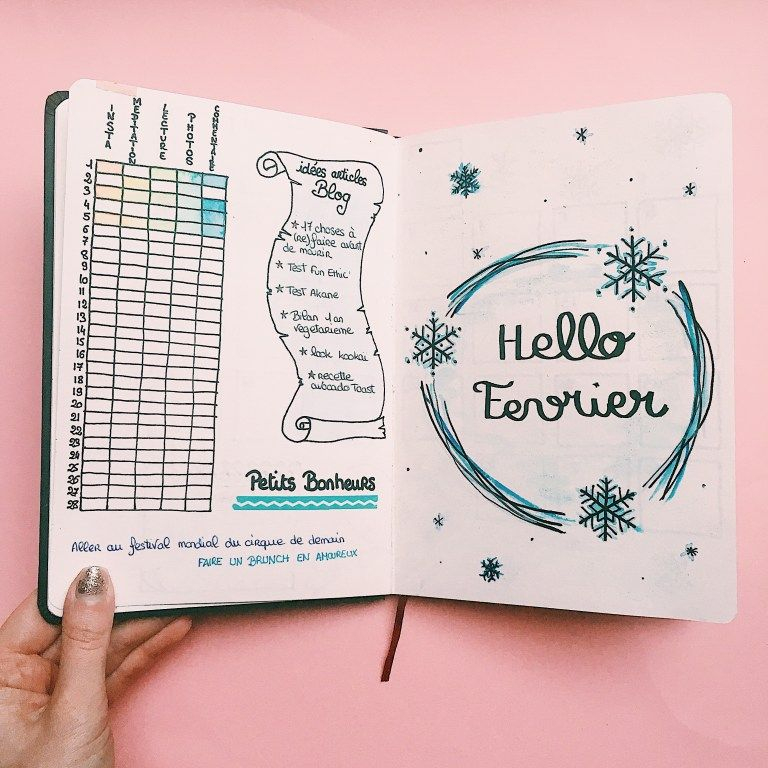 INSTA
MEDITATION
LECTURE
PHOTOS
COMMENTAIRE
1
2
3
4
5
6
7
8
9
10
11
12
13
14
15
16
17
18
19
20
21
22
23
24
25
26
27
28
idées articles
Blog
* 17 choses à
(re)faire avant
de mourir
* Test Fun Ethic'
* Test Akane
* Bilan 1 an
vegetarienne
* look kookaï
* recette
avocado Toast
Petits Bonheurs
Aller au festival mondial du cirque de demain
FAIRE UN BRUNCH EN AMOUREUX
Hello
Fevrier